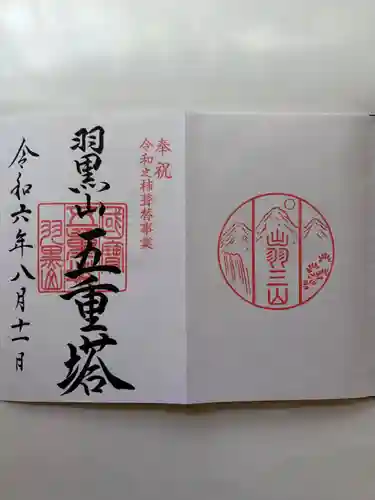 奉祝
令和之杮葺替事業
羽黒山五重塔
令和六年八月十一日
羽黒山
出羽三山